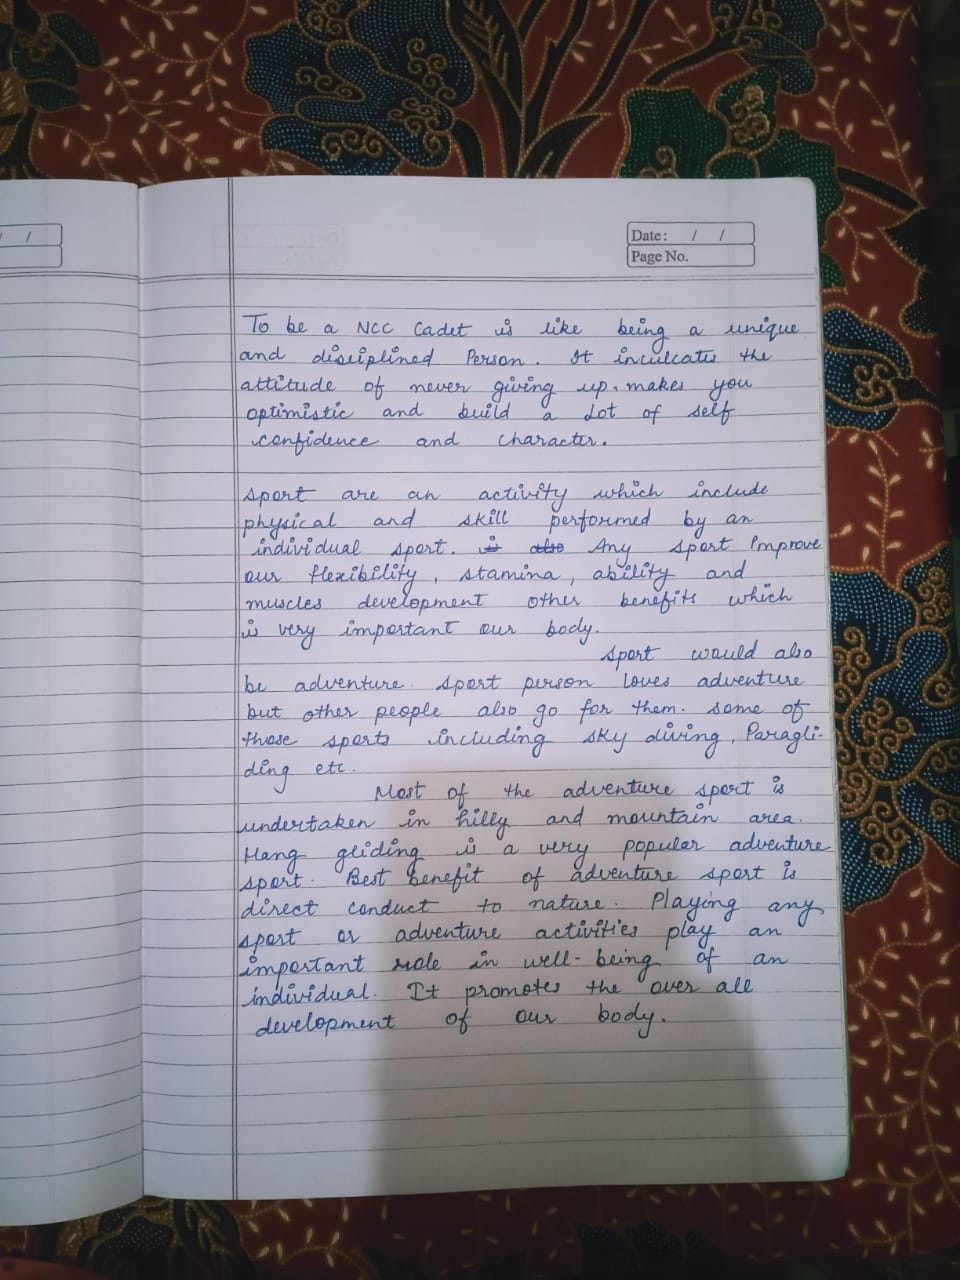 / /
Date: / /
Page No.
To be a NCC Cadet is like being a unique
and disciplined Person. It inculcates the
attitude of never giving up. makes you
optimistic and build a lot of self
confidence and character.
sport are an activity which include
physical and skill performed by an
individual sport. is also Any sport Improve
our flexibility, stamina, ability and
muscles development other benefits which
is very important our body.
sport would also
be adventure. sport person loves adventure
but other people also go for them. some of
those sports including sky diving, Paragli-
ding etc.
Most of the adventure sport is
undertaken in hilly and mountain area.
Hang gliding is a very popular adventure
sport. Best benefit of adventure sport is
direct conduct to nature. Playing any
sport or adventure activities play an
important role in well-being of an
individual. It promotes the over all
development of our body.